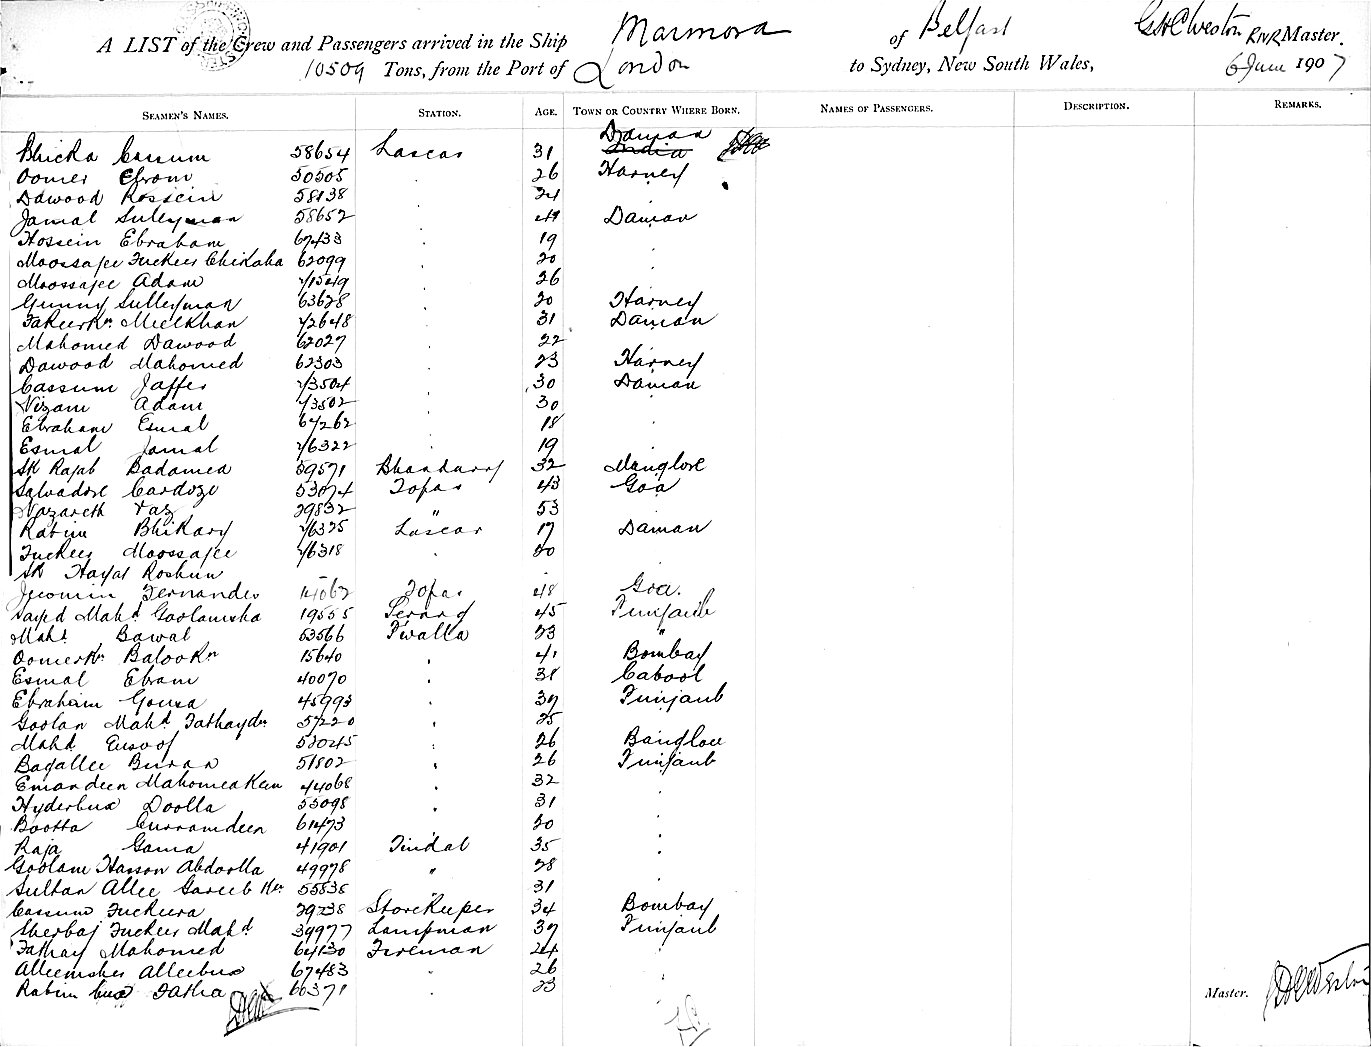 A LIST of the Crew and Passengers arrived in the Ship Marmora of Belfast G H C Weston RNR Master.
10509 Tons, from the Port of London to Sydney, New South Wales, 6 June 1907
SEAMEN'S NAMES. STATION. AGE. TOWN OR COUNTRY WHERE BORN. NAMES OF PASSENGERS. DESCRIPTION. REMARKS.
Daman
Bhicka Cassum 58654 Lascar 31 India
Oomer Ebram 50505 . 26 Harney
Dawood Hossein 58138 . 24
Jamal Suleyman 58652 . Daman
Hossein Ebraham 67433 . 19 .
Moossajee Fuckeer Chikaha 62099 . 20 .
Moossajee Adam 71549 . 26 .
Gunny Sulleyman 63628 . 20 Harney
Fakeerkn Meelkhan 72648 . 31 Daman
Mahomed Dawood 62027 . 22 .
Dawood Mahomed 62303 . 23 Harney
Cassum Jaffer 73504 . 30 Daman
Nizam Adam 73502 . 30 .
Ebraham Esmal 67262 . 18 .
Esmal Jamal 76322 . 19 .
Sk Rajab Badamea 59571 Bhandarry 32 Manglore
Salvadore Cardozo 53074 Topas 43 Goa
Nazareth Vaz 29832 " 53 .
Rahim Bhikary 76325 Lascar 17 Daman
Fuckeer Moossajee 76318 . 20 .
Sk Hayat Roshun
Fernandes Topas 48 Goa.
Sayed Mahd. Goolamsha 19555 Serang 45 Punjaub
Mahd. Gawal 53566 Pwalla 23 "
Oomerkn Balookn 15640 . 41 Bombay
Esmal Ebram 40070 . 31 Cabool
Ebraham Gousa 45993 . 37 Punjaub
Goolam Mahd. Fathaydn 57220 . 25 .
Mahd. Eusoof 53045 . 26 Banglore
Bagallee Buran 51802 . 26 Punjaub
Emandeen Mahomeaken 44068 . 32 .
Hyderbux Doolla 53098 . 31 .
Bootta Curramdeen 61473 . 20 .
Raja Gama 41901 Tindal 35 .
Goolam Hasson Abdoolla 49978 " 28 .
Sultan Allee Gareeb Kn 55535 " 31 .
Cassum Fuckeera 29238 Storekeeper 34 Bombay
Sherbaj Fuckeer Mahd 39977 Lampman 37 Punjaub
Fathay Mahomed 64130 Fireman 24 .
Alleemsher Alleebux 67483 " 26 .
Rahim bux Fatha 60371 . 23 .
Master. G H C Weston